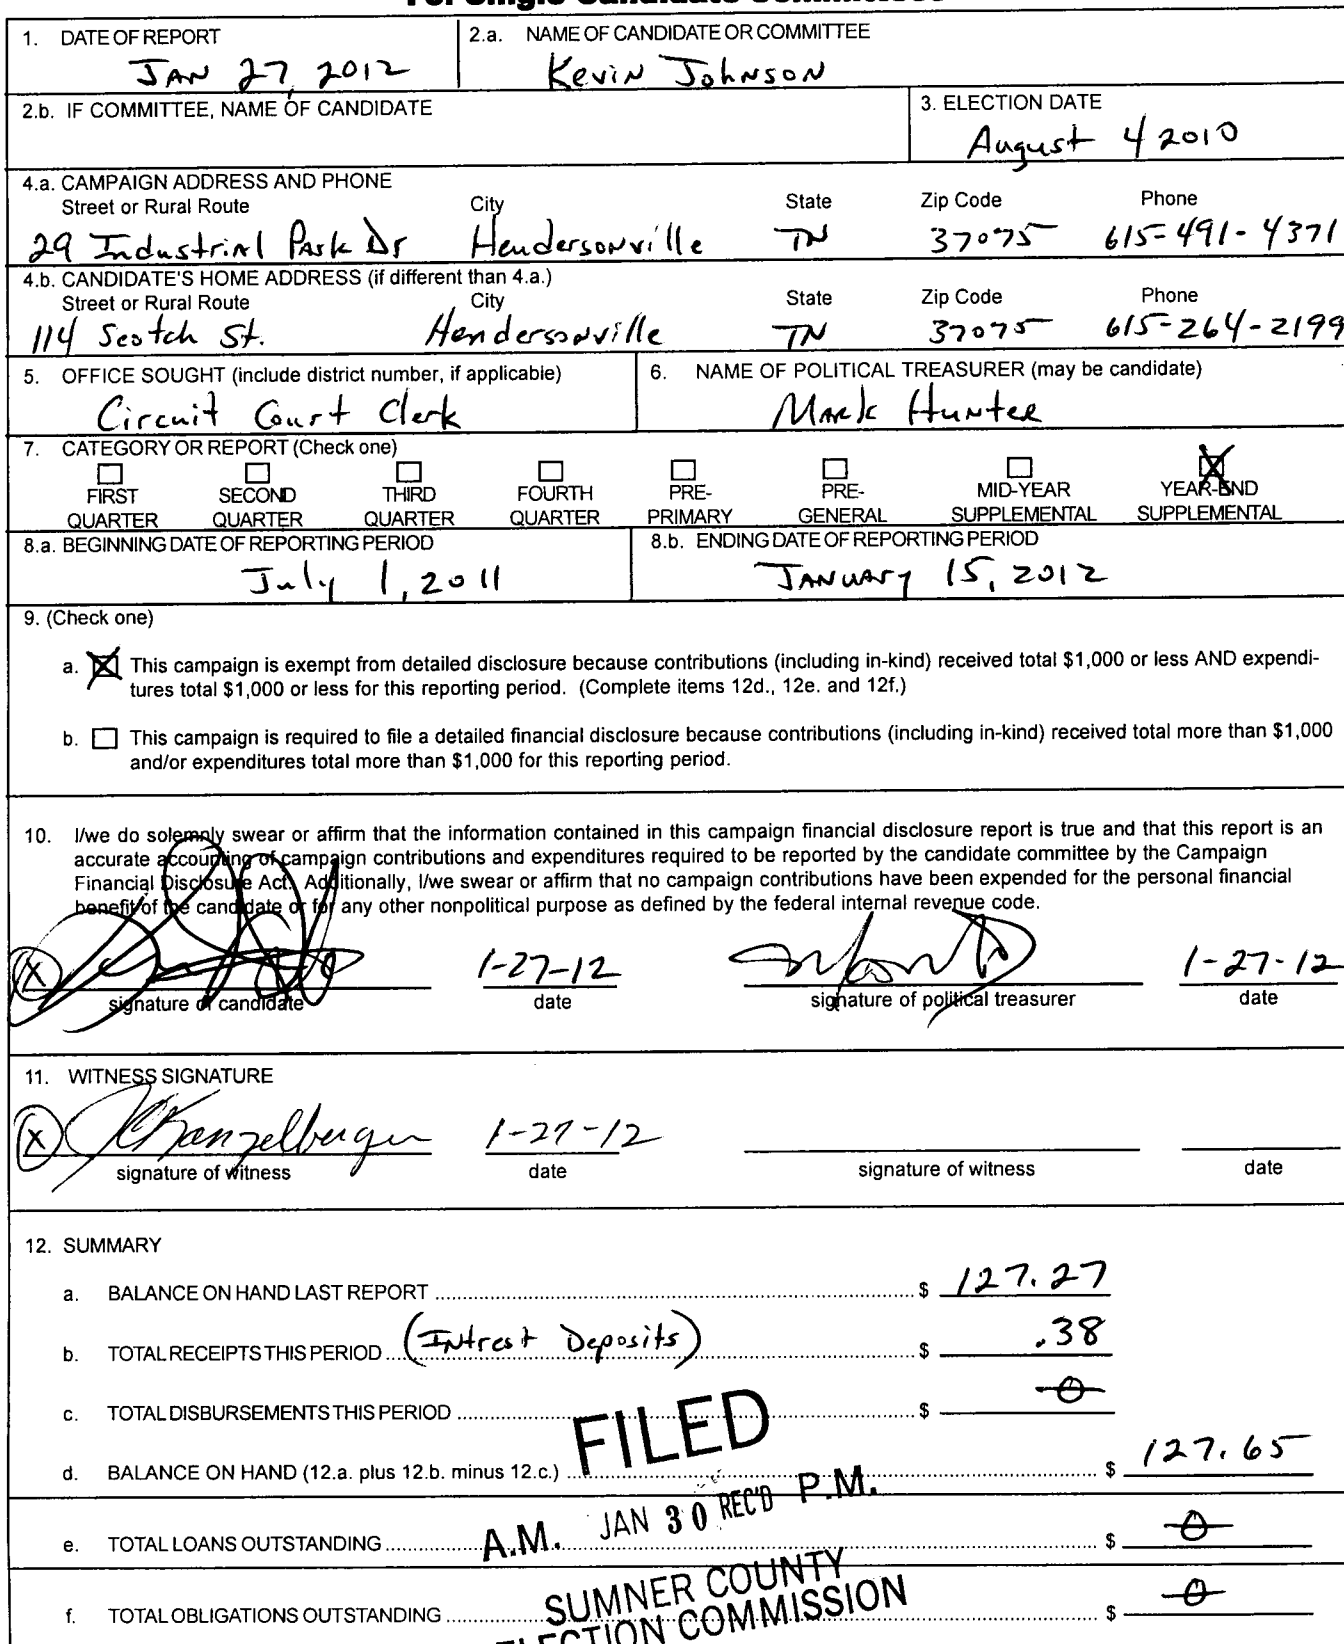 For Single Candidate Committees
1. DATE OF REPORT
JAN 27, 2012
2.a. NAME OF CANDIDATE OR COMMITTEE
Kevin Johnson
2.b. IF COMMITTEE, NAME OF CANDIDATE
3. ELECTION DATE
August 4 2010
4.a. CAMPAIGN ADDRESS AND PHONE
Street or Rural Route City State Zip Code Phone
29 Industrial Park Dr Hendersonville TN 37075 615-491-4371
4.b. CANDIDATE'S HOME ADDRESS (if different than 4.a.)
Street or Rural Route City State Zip Code Phone
114 Scotch St. Hendersonville TN 37075 615-264-2199
5. OFFICE SOUGHT (include district number, if applicable)
Circuit Court Clerk
6. NAME OF POLITICAL TREASURER (may be candidate)
Mark Hunter
7. CATEGORY OR REPORT (Check one)
FIRST QUARTER
SECOND QUARTER
THIRD QUARTER
FOURTH QUARTER
PRE-PRIMARY
PRE-GENERAL
MID-YEAR SUPPLEMENTAL
X YEAR-END SUPPLEMENTAL
8.a. BEGINNING DATE OF REPORTING PERIOD
July 1, 2011
8.b. ENDING DATE OF REPORTING PERIOD
January 15, 2012
9. (Check one)
a. X This campaign is exempt from detailed disclosure because contributions (including in-kind) received total $1,000 or less AND expendi-
tures total $1,000 or less for this reporting period. (Complete items 12d., 12e. and 12f.)
b. This campaign is required to file a detailed financial disclosure because contributions (including in-kind) received total more than $1,000
and/or expenditures total more than $1,000 for this reporting period.
10. I/we do solemnly swear or affirm that the information contained in this campaign financial disclosure report is true and that this report is an
accurate accounting of campaign contributions and expenditures required to be reported by the candidate committee by the Campaign
Financial Disclosure Act. Additionally, I/we swear or affirm that no campaign contributions have been expended for the personal financial
benefit of the candidate or for any other nonpolitical purpose as defined by the federal internal revenue code.
X 1-27-12 1-27-12
signature of candidate date signature of political treasurer date
11. WITNESS SIGNATURE
X 1-27-12
signature of witness date signature of witness date
12. SUMMARY
a. BALANCE ON HAND LAST REPORT $ 127.27
b. TOTAL RECEIPTS THIS PERIOD (Intrest Deposits) $ .38
c. TOTAL DISBURSEMENTS THIS PERIOD $ 0
FILED
d. BALANCE ON HAND (12.a. plus 12.b. minus 12.c.) $ 127.65
A.M. JAN 30 REC'D P.M.
e. TOTAL LOANS OUTSTANDING $ 0
SUMNER COUNTY
f. TOTAL OBLIGATIONS OUTSTANDING $ 0
ELECTION COMMISSION